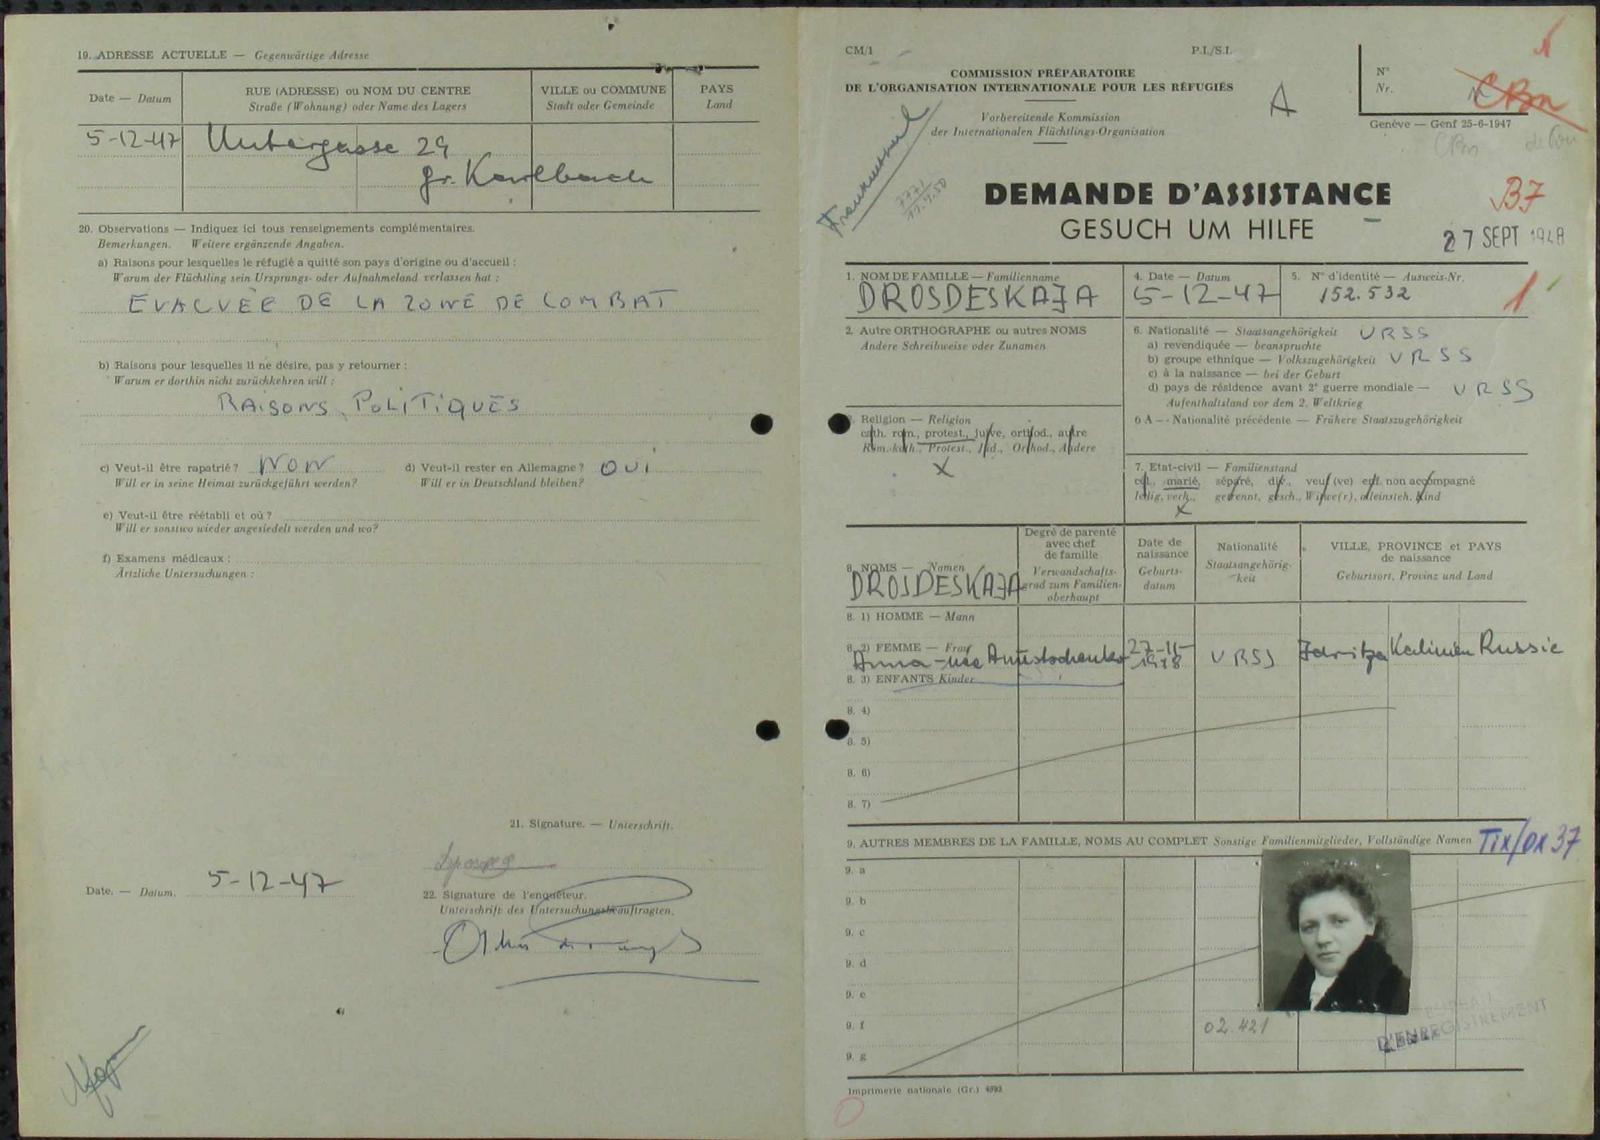 19. ADRESSE ACTUELLE — Gegenwärtige Adresse
Date — Datum
RUE (ADRESSE) ou NOM DU CENTRE
Straße (Wohnung) oder Name des Lagers
VILLE ou COMMUNE
Stadt oder Gemeinde
PAYS
Land
5-12-47 Untergasse 29
gr. Karlbach
20. Observations — Indiquez ici tous renseignements complémentaires.
Bemerkungen. Weitere ergänzende Angaben.
a) Raisons pour lesquelles le réfugié a quitté son pays d'origine ou d'accueil :
Warum der Flüchtling sein Ursprungs- oder Aufnahmeland verlassen hat :
EVACUÉE DE LA ZONE DE COMBAT
b) Raisons pour lesquelles il ne désire, pas y retourner :
Warum er dorthin nicht zurückkehren will :
RAISONS POLITIQUES
c) Veut-il être rapatrié ? NON
Will er in seine Heimat zurückgeführt werden?
d) Veut-il rester en Allemagne ? OUI
Will er in Deutschland bleiben?
e) Veut-il être réétabli et où ?
Will er sonstwo wieder angesiedelt werden und wo?
f) Examens médicaux :
Ärztliche Untersuchungen :
21. Signature. — Unterschrift.
Date. — Datum. 5-12-47
22. Signature de l'enquêteur.
Unterschrift des Untersuchungsbeauftragten.
CM/1
P.I./S.I.
COMMISSION PRÉPARATOIRE
DE L'ORGANISATION INTERNATIONALE POUR LES RÉFUGIÉS
Vorbereitende Kommission
der Internationalen Flüchtlings-Organisation
A
N°
Nr.
CBn
Genève — Genf 25-6-1947
CBn
DEMANDE D'ASSISTANCE
GESUCH UM HILFE
B7
27 SEPT 1948
1. NOM DE FAMILLE — Familienname
DROSDESKAJA
4. Date — Datum
5-12-47
5. N° d'identité — Ausweis-Nr.
152.532
1
2. Autre ORTHOGRAPHE ou autres NOMS
Andere Schreibweise oder Zunamen
6. Nationalité — Staatsangehörigkeit URSS
a) revendiquée — beanspruchte
b) groupe ethnique — Volkszugehörigkeit URSS
c) à la naissance — bei der Geburt
d) pays de résidence avant 2e guerre mondiale — URSS
Aufenthaltsland vor dem 2. Weltkrieg
6 A — Nationalité précédente — Frühere Staatszugehörigkeit
Religion — Religion
cath. rom., protest., juive, orthod., autre
Röm.-kath., Protest., Jüd., Orthod., Andere
X
7. Etat-civil — Familienstand
cél., marié, séparé, div., veuf (ve) enf. non accompagné
ledig, verh., getrennt, gesch., Witwe(r), alleinsteh. Kind
X
8. NOMS — Namen
DROSDESKAJA
Degré de parenté
avec chef
de famille
Verwandschafts-
grad zum Familien-
oberhaupt
Date de
naissance
Geburts-
datum
Nationalité
Staatsangehörig-
keit
VILLE, PROVINCE et PAYS
de naissance
Geburtsort, Provinz und Land
8. 1) HOMME — Mann
8. 2) FEMME — Frau
Anna - née URSS Kalinin Russie
8. 3) ENFANTS Kinder
8. 4)
8. 5)
8. 6)
8. 7)
9. AUTRES MEMBRES DE LA FAMILLE, NOMS AU COMPLET Sonstige Familienmitglieder, Vollständige Namen
9. a
9. b
9. c
9. d
9. e
9. f
9. g
02.421
D'ENREGISTREMENT
Imprimerie nationale (Gr.)